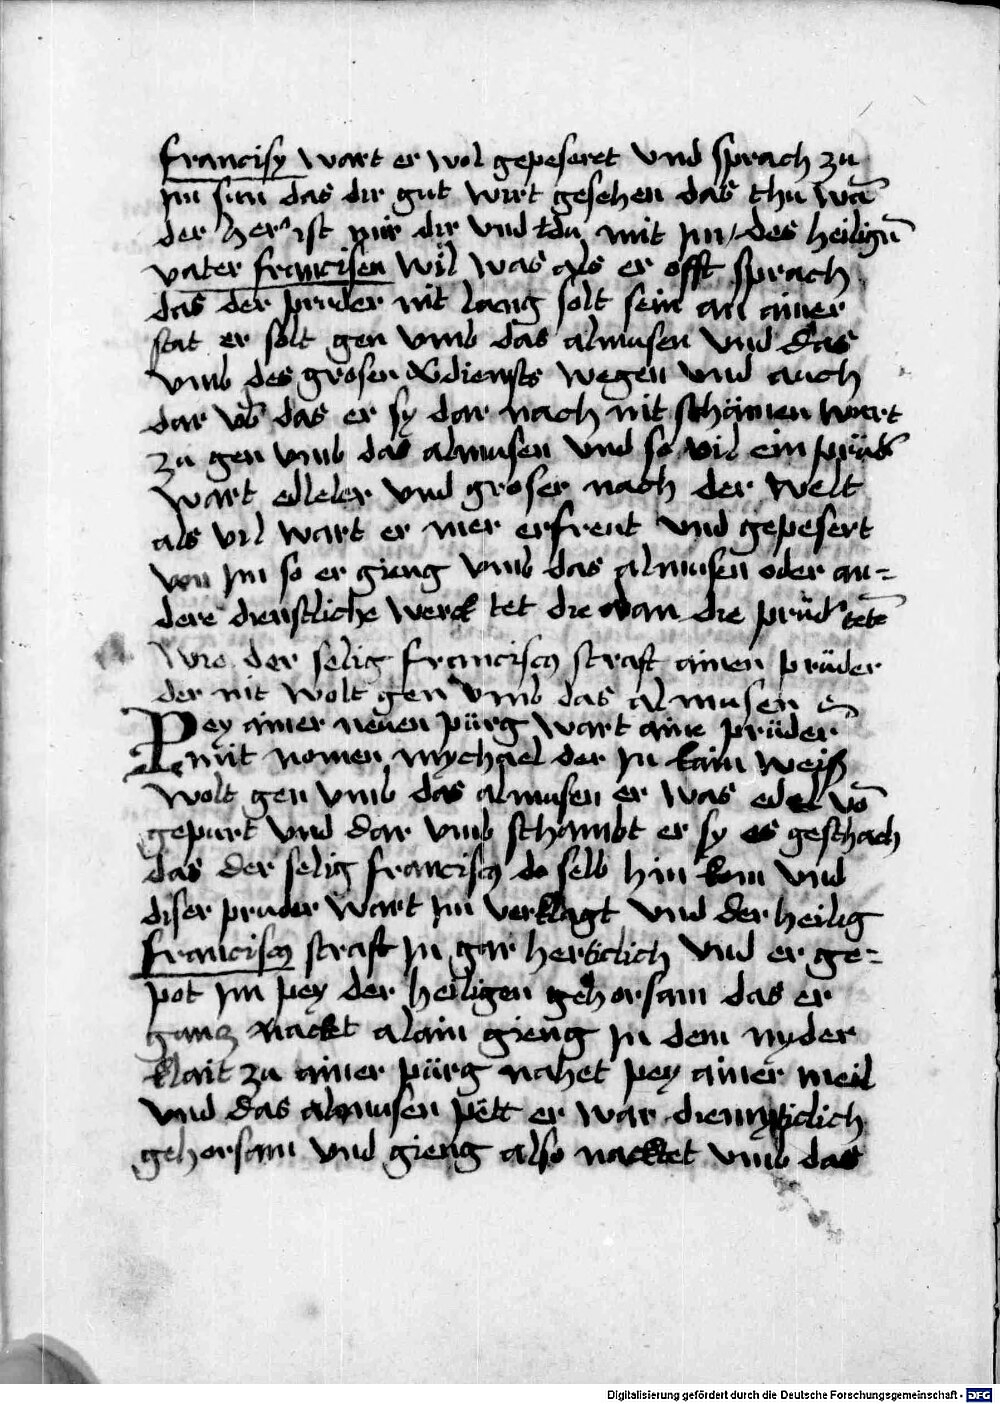 francisy wart er wol gepeseret vnd sprach zu
jm sun das dir gut wirt gesehen das thu wā
der her ist mir dir vnd du mit jm / des heiligñ
vater francisen wil was als er offt sprach
das der pruder nit lang solt sein an ainer
stat er solt gen vmb das almusen vnd das
vmb des grosen v̄diensts wegen vnd auch
dar vb̄ das er sy dar nach nit schämen wurt
zu gen vmb das almusen vnd so vil ein prüd'
wart edleler vnd groser nach der welt
als vil wart er mer erfreut vnd gepesert
von jm so er gieng vmb das almusen oder an=
dere dienstliche werck tet die dan die prüd' tetē
Wie der selig franciscꝫ straft ainen prüder
der nit wolt gen vmb das almusen
Pey ainer neuen pürg wart aine prüder
mit nomen mychael der jn kain weiß
wolt gen vmb das almusen er was edel vō
gepurt vnd dar vmb schambt er sy es geschach
das der selig franciscꝫ do selb hin kom vnd
diser pruder wart jm verklagt vnd der heilig
franciscꝫ straft jn gar herticlich vnd er ge=
pot jm pey der heiligen gehorsam das er
gancz nackt alain gieng jn dem nyder
klait zu ainer pürg nahet pey ainer meil
vnd das almusen pett er war diemyticlich
gehorsam vnd gieng also nacktet vmb das
Digitalisierung gefördert durch die Deutsche Forschungsgemeinschaft - DFG